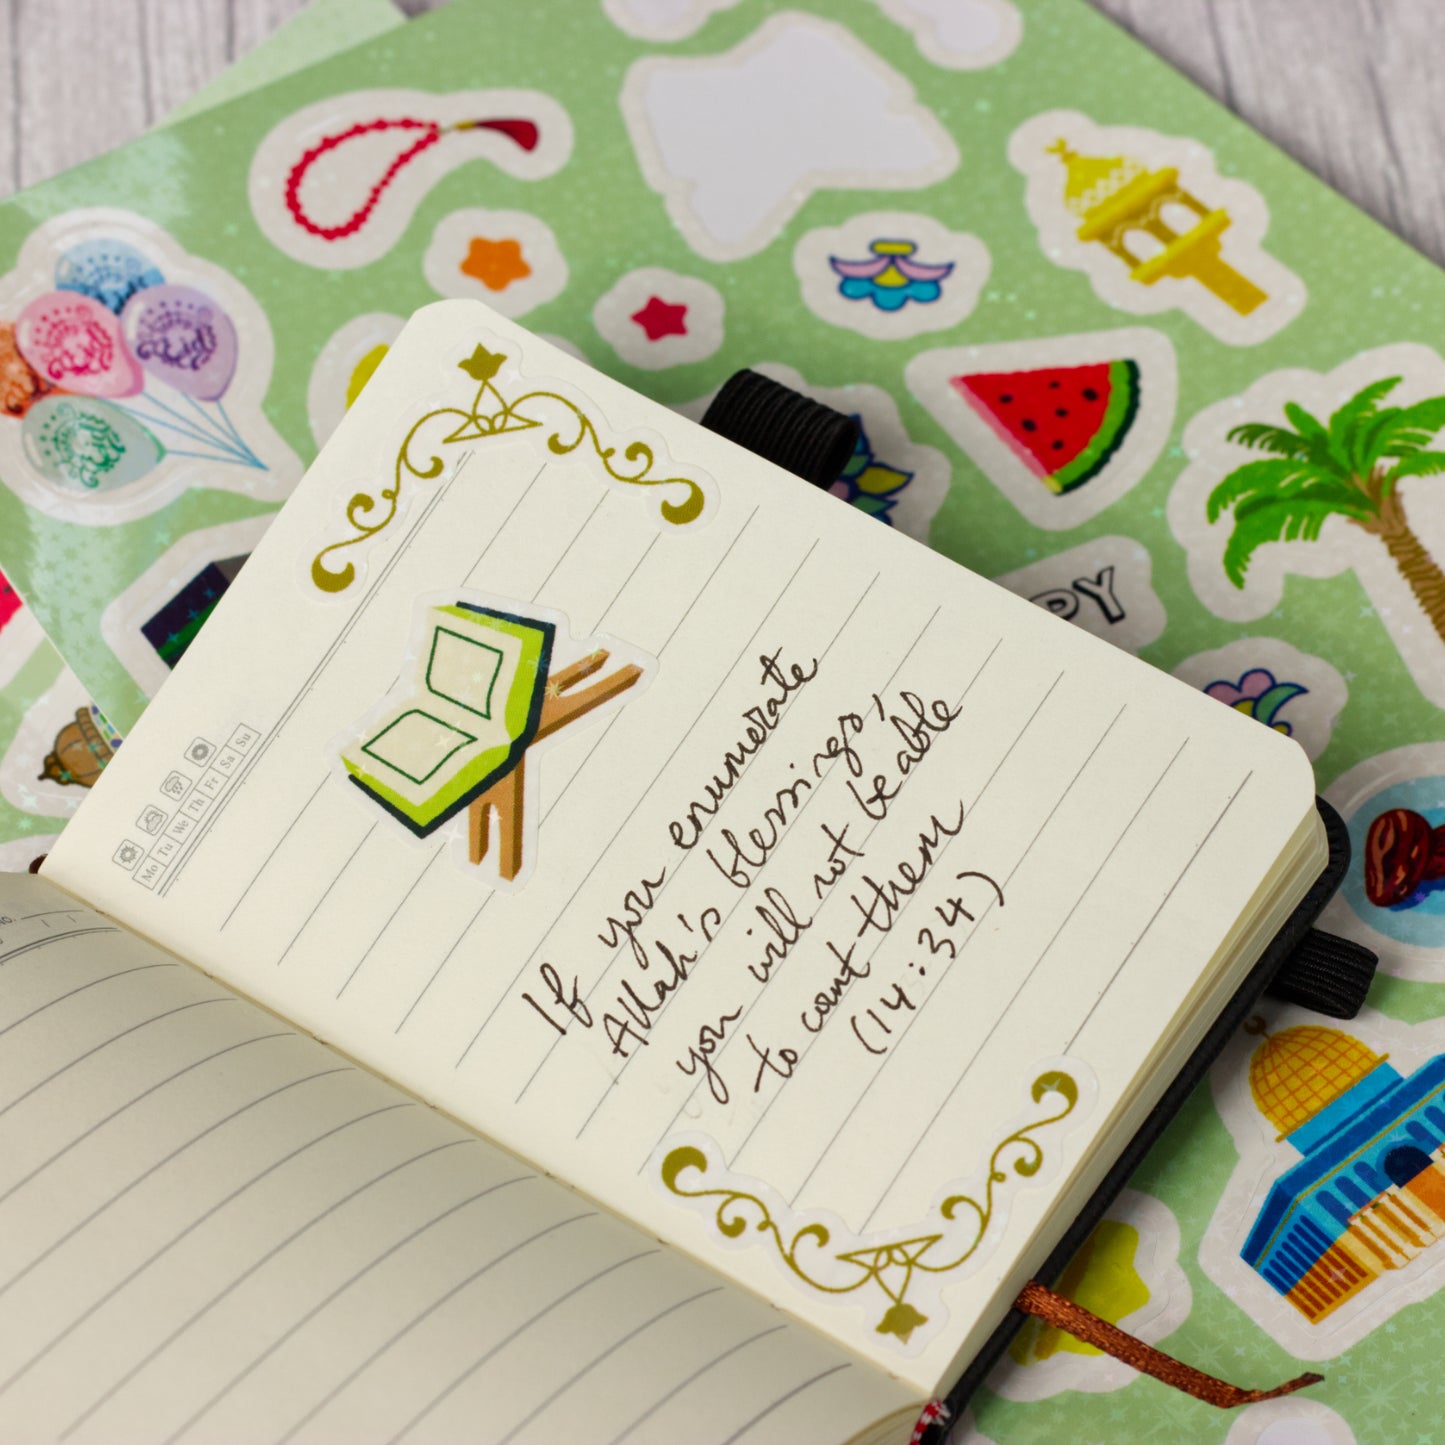 If you enumerate
Allah's blessings,
you will not be able
to count them
(14:34)
Mo Tu We Th Fr Sa Su
No.
PY